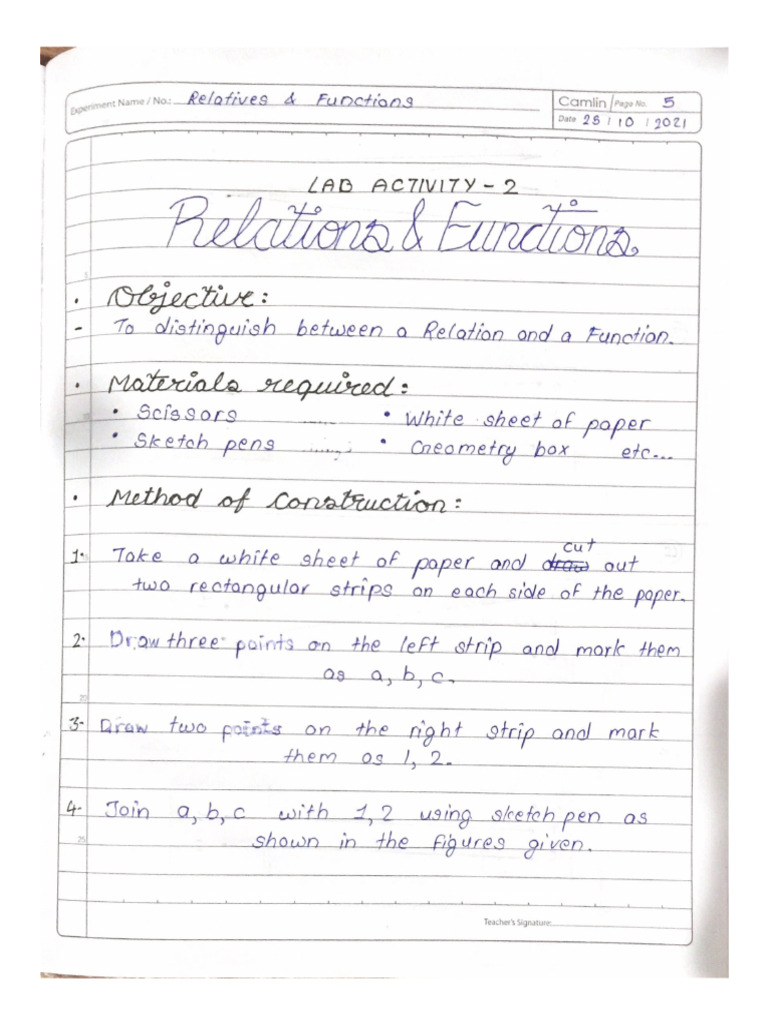 Experiment Name / No.: Relatives & Functions
Camlin Page No. 5
Date 25 / 10 / 2021
LAB ACTIVITY - 2
Relations & Functions.
• Objective:
- To distinguish between a Relation and a Function.
• Materials required:
• Scissors • White sheet of paper
• Sketch pens • Geometry box etc...
• Method of Construction:
1. Take a white sheet of paper and draw cut out
two rectangular strips on each side of the paper.
2. Draw three points on the left strip and mark them
as a, b, c.
20
3. Draw two points on the right strip and mark
them as 1, 2.
4. Join a, b, c with 1, 2 using sketch pen as
25
shown in the figures given.
Teacher's Signature: